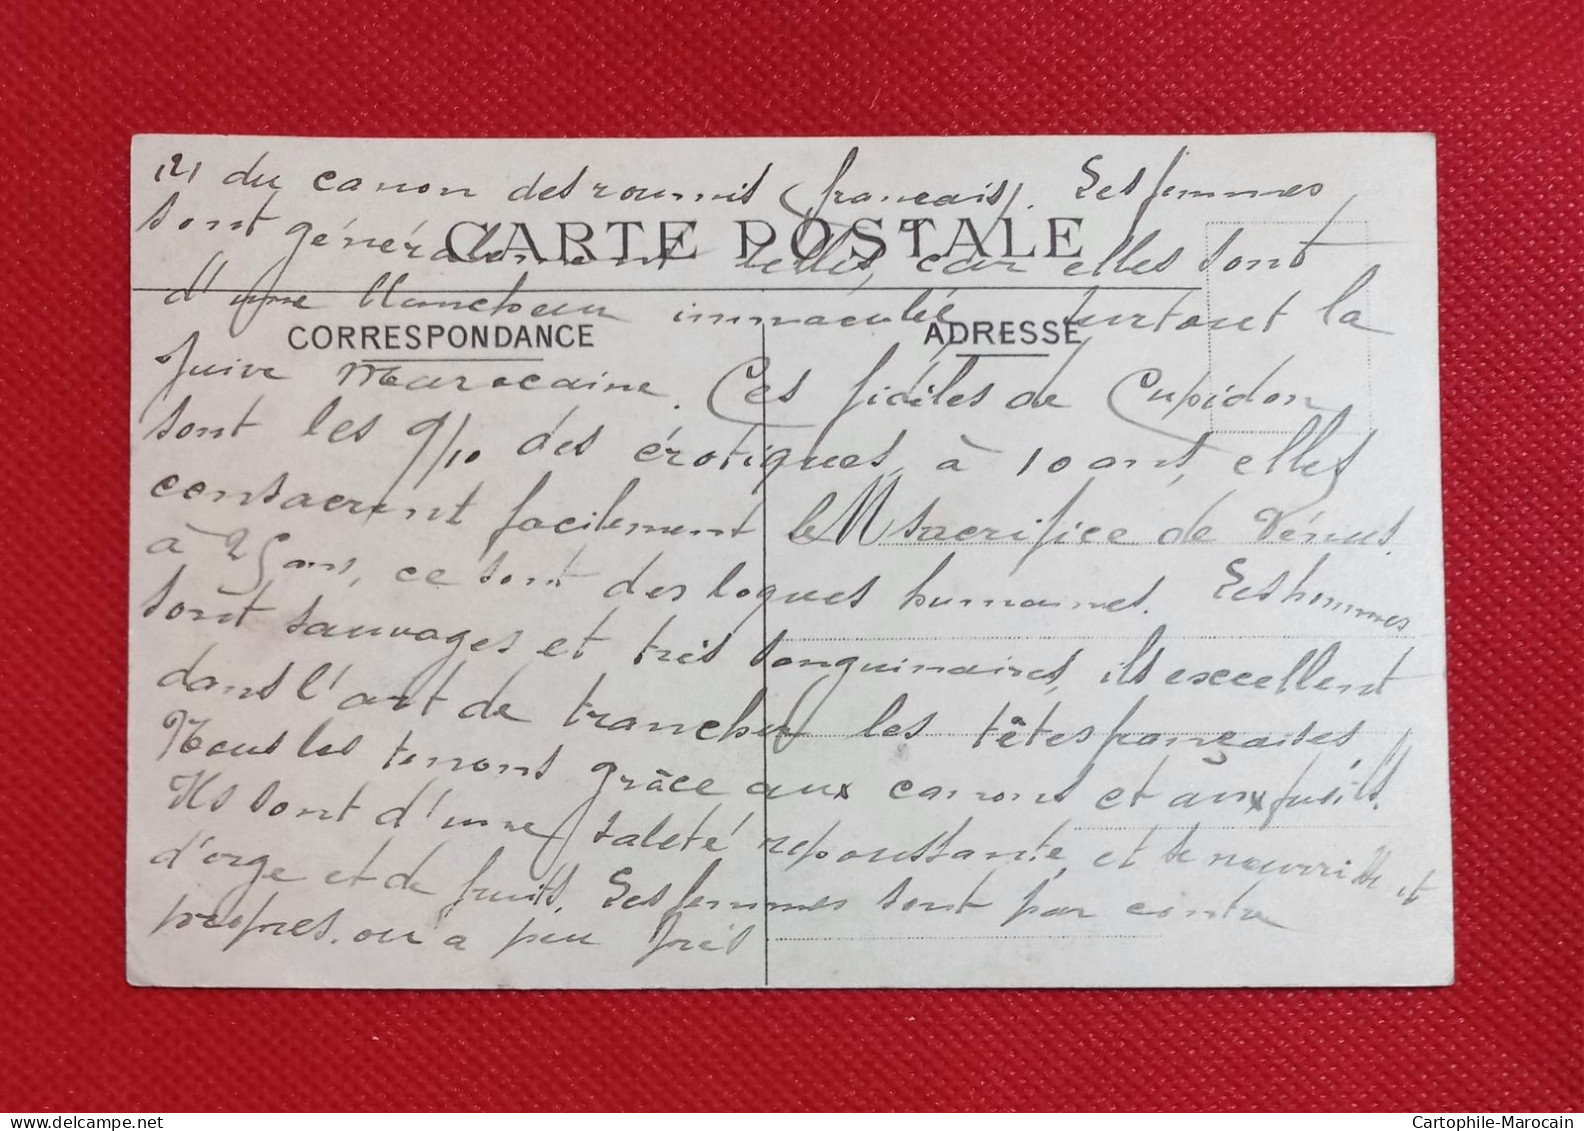 (2) du canon des roumis (français). Les femmes
CARTE POSTALE
sont généralement belles, car elles sont
d'une blancheur immaculée surtout la
CORRESPONDANCE
ADRESSE
Juive Marocaine. Ces fidèles de Cupidon
sont les 9/10 des érotiques, à 10 ans, elles
consacrent facilement le sacrifice de Vénus.
à 25 ans, ce sont des loques humaines. Les hommes
sont sauvages et très sanguinaires, ils excellent
dans l'art de trancher les têtes françaises
Nous les tenons grâce aux canons et aux fusils.
Ils sont d'une saleté repoussante, et se nourrissent
d'orge et de fruits. Les femmes sont par contre
propres. ou à peu près
www.delcampe.net
Cartophile-Marocain